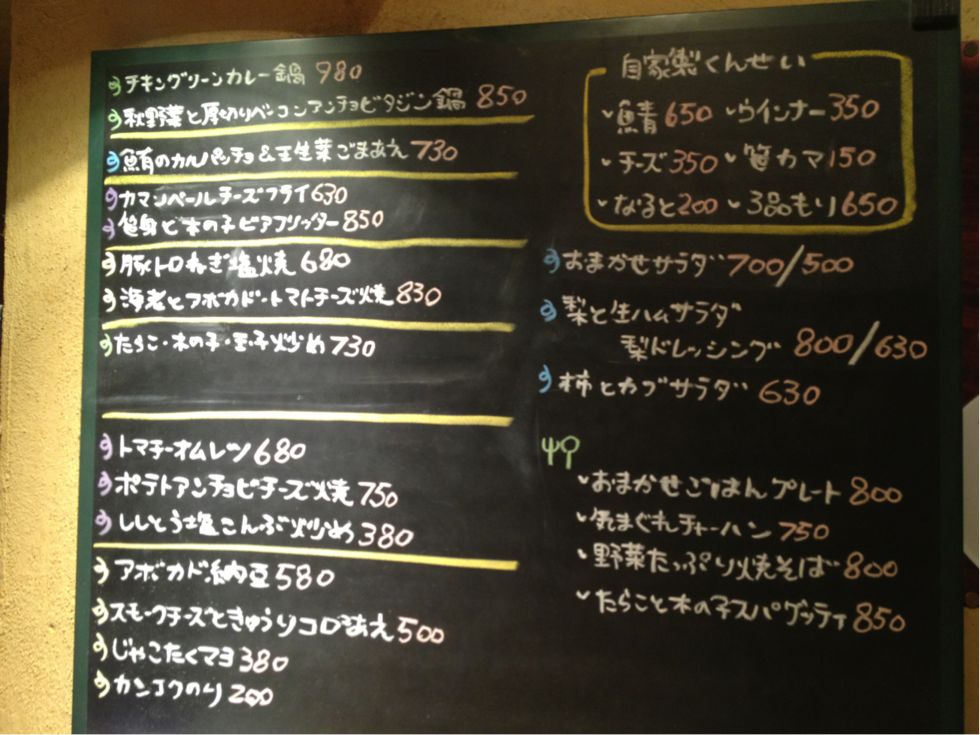 チキングリーンカレー鍋 980
秋野菜と厚切りベーコンアンチョビタジン鍋 850
鮪のカルパッチョ&壬生菜ごまあえ 730
カマンベールチーズフライ 630
笹身と木の子ビアフリッター 850
豚トロねぎ塩焼 680
海老とアボカド・トマトチーズ焼 830
たらこ・木の子・玉子炒め 730
トマチーオムレツ 680
ポテトアンチョビチーズ焼 750
ししとう塩こんぶ炒め 380
アボカド納豆 580
スモークチーズときゅうりコロコロあえ 500
じゃこたくマヨ 380
カンコクのり 200
自家製くんせい
鯖 650 ウインナー 350
チーズ 350 笹カマ 150
なると 200 3品もり 650
おまかせサラダ 700/500
梨と生ハムサラダ
梨ドレッシング 800/630
柿とカブサラダ 630
おまかせごはんプレート 800
気まぐれチャーハン 750
野菜たっぷり焼そば 800
たらこと木の子スパゲッティ 850